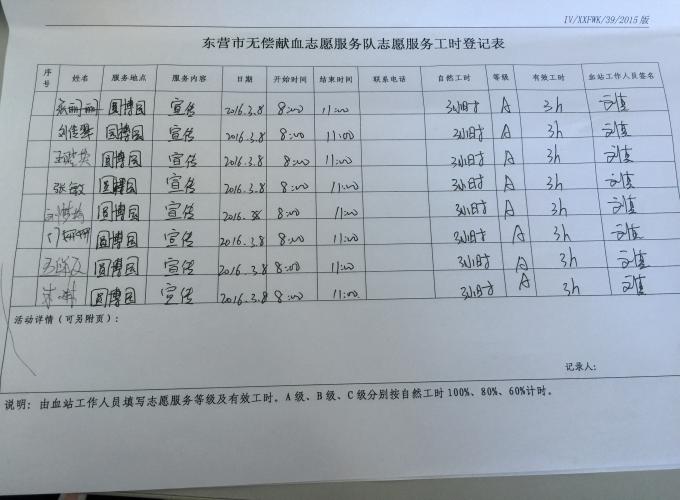 IV/XXFWK/39/2015版
东营市无偿献血志愿服务队志愿服务工时登记表
序号 姓名 服务地点 服务内容 日期 开始时间 结束时间 联系电话 自然工时 等级 有效工时 血站工作人员签名
圆博园 宣传 2016.3.8 8:00 11:00 3小时 A 3h
刘佳翠 圆博园 宣传 2016.3.8 8:00 11:00 3小时 A 3h
圆博园 宣传 2016.3.8 8:00 11:00 3小时 A 3h
张敏 圆博园 宣传 2016.3.8 8:00 11:00 3小时 A 3h
圆博园 宣传 2016. 8:00 11:00 3小时 A 3h
圆博园 宣传 2016.3.8 8:00 11:00 3小时 A 3h
圆博园 宣传 2016.3.8 8:00 11:00 3小时 A 3h
圆博园 宣传 2016.3.8 8:00 11:00 3小时 A 3h
活动详情（可另附页）：
记录人：
说明：由血站工作人员填写志愿服务等级及有效工时。A级、B级、C级分别按自然工时100%、80%、60%计时。